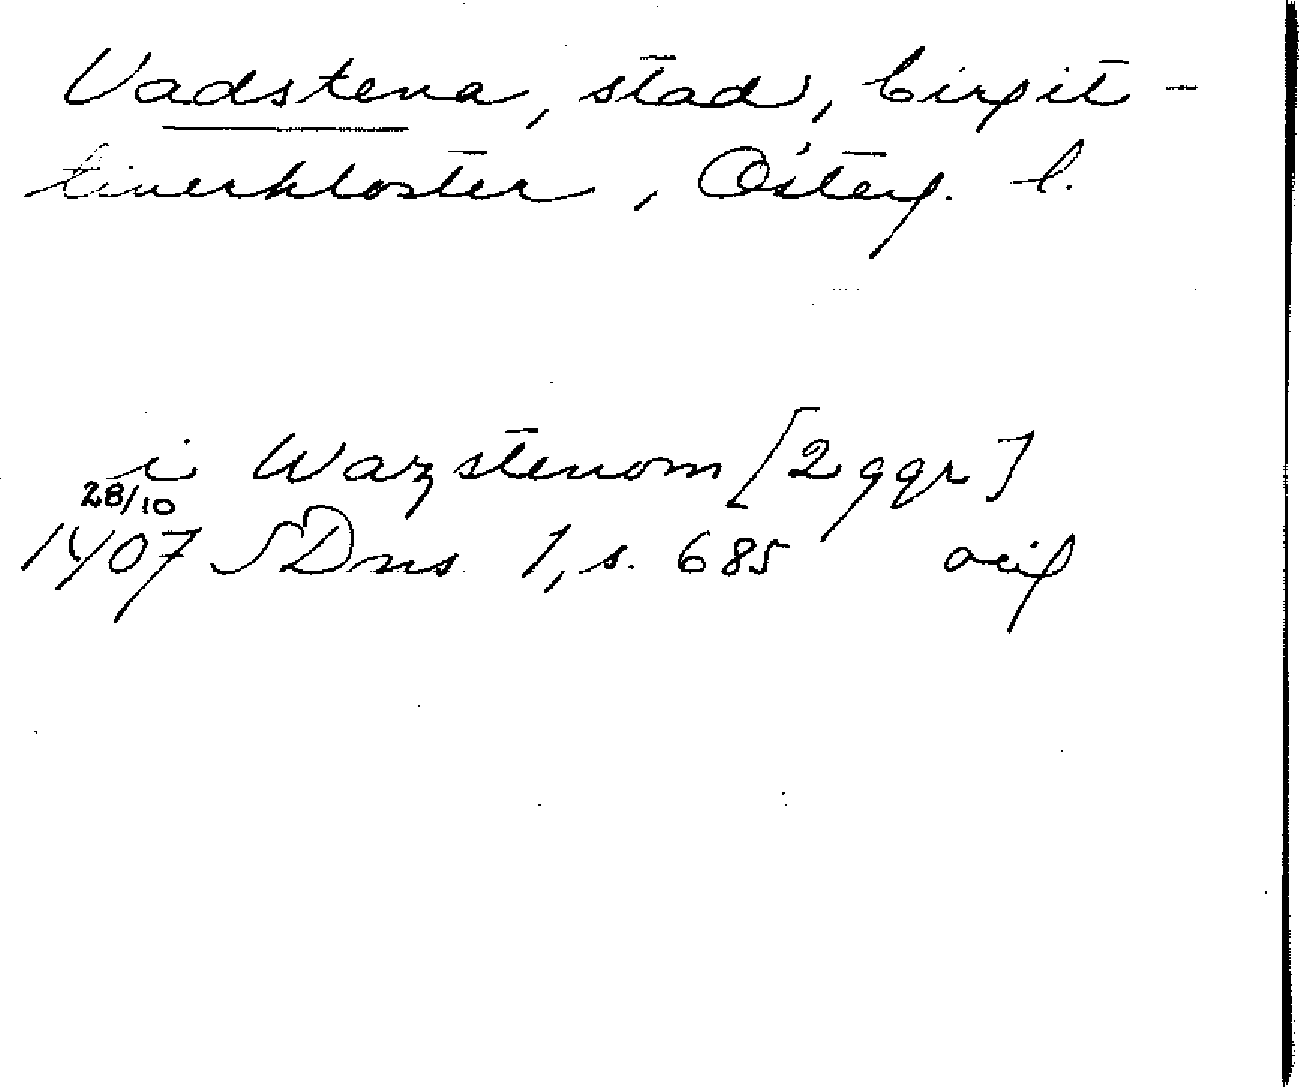 Vadstena, stad, birgit-
tinerkloster, Österg. l.
i Wazstenom [2 ggr]
28/10
1407 SDns 1, s. 685 orig